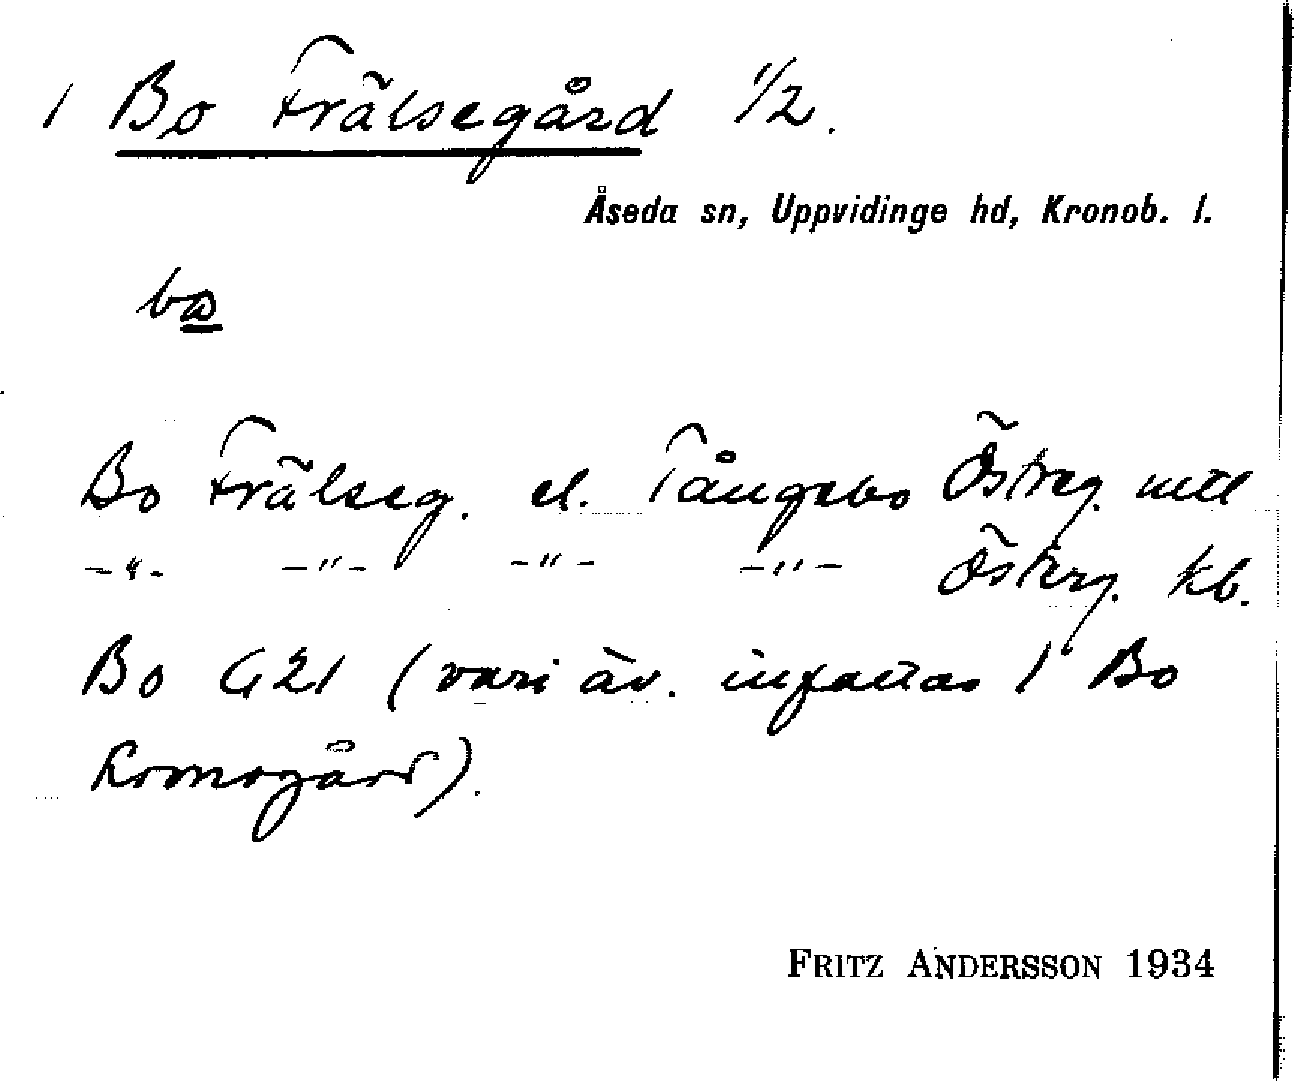 1 Bo Frälsegård 1/2.
Åseda sn, Uppvidinge hd, Kronob. l.
bo
Bo Frälseg. el. Tångebo Österg. mtl
-"- -"- -"- -"- Österg. kb.
Bo G21 (vari äv. inf 1 Bo
Kronogård).
FRITZ ANDERSSON 1934